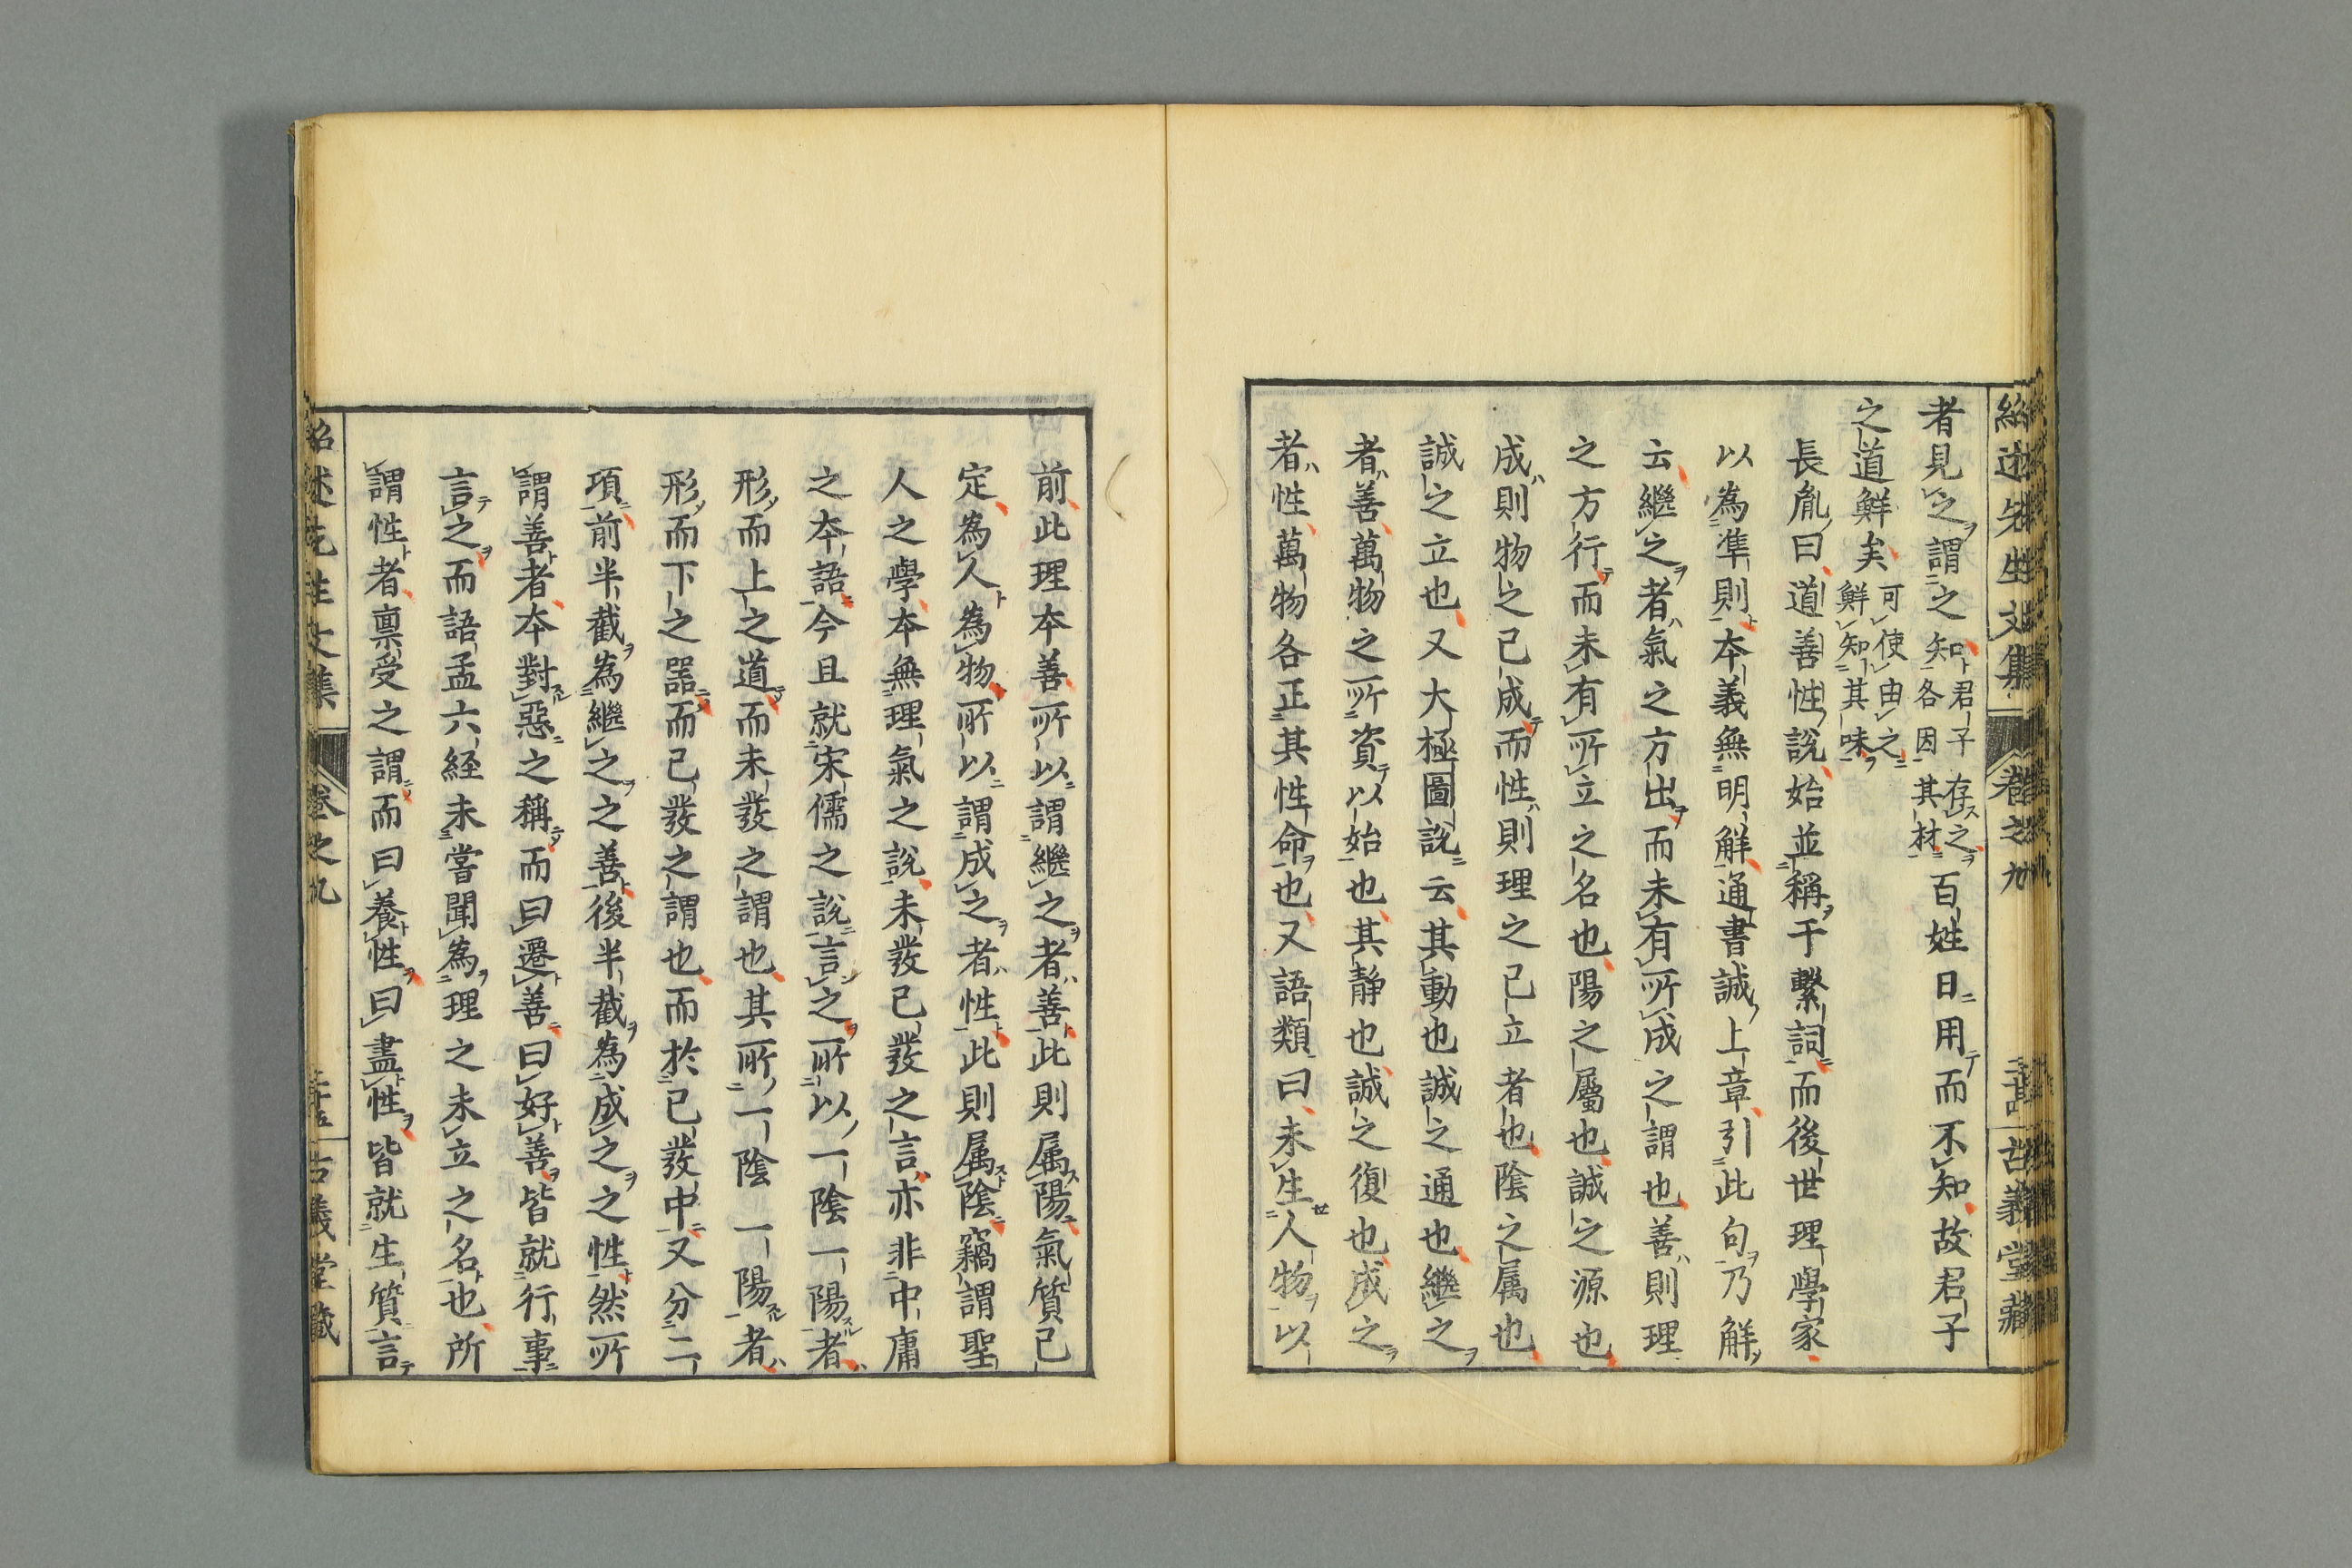 紹述先生文集 卷之九 古義堂藏
者見之謂之知君子存之各因其材百姓日用而不知故君子
之道鮮矣可使由之鮮知其味
長胤曰道善性說始並稱于繫詞而後世理學家
以為準則本義無明解通書誠上章引此句乃解
云繼之者氣之方出而未有所成之謂也善則理
之方行而未有所立之名也陽之屬也誠之源也
成則物之已成而性則理之已立者也陰之属也
誠之立也又大極圖說云其動也誠之通也繼之
者善萬物之所資以始也其靜也誠之復也成之
者性萬物各正其性命也又語類曰未生人物以
前此理本善所以謂繼之者善此則属陽氣質已
定為人為物所以謂成之者性此則属陰竊謂聖
人之學本無理氣之說未發已發之言亦非中庸
之本語今且就宋儒之說言之所以一陰一陽者
形而上之道而未發之謂也其所一陰一陽者
形而下之器而已發之謂也而於已發中又分二
項前半截為繼之之善後半截為成之之性然所
謂善者本對惡之稱而曰遷善曰好善皆就行事
言之而語孟六経未嘗聞為理之未立之名也所
謂性者禀受之謂而曰養性曰盡性皆就生質言
紹述先生文集 卷之九 二十五 古義堂藏